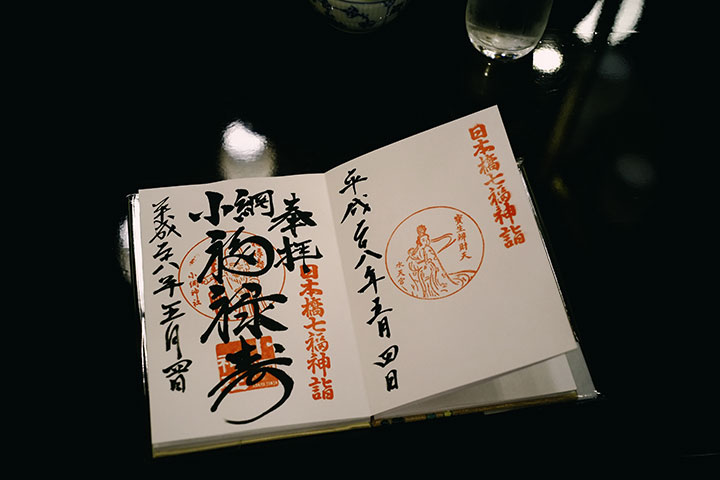 日本橋七福神詣
寶生辨財天
水天宮
平成二八年五月四日
奉拝
日本橋七福神詣
小網
福禄寿
小網神社
平成二八年五月四日